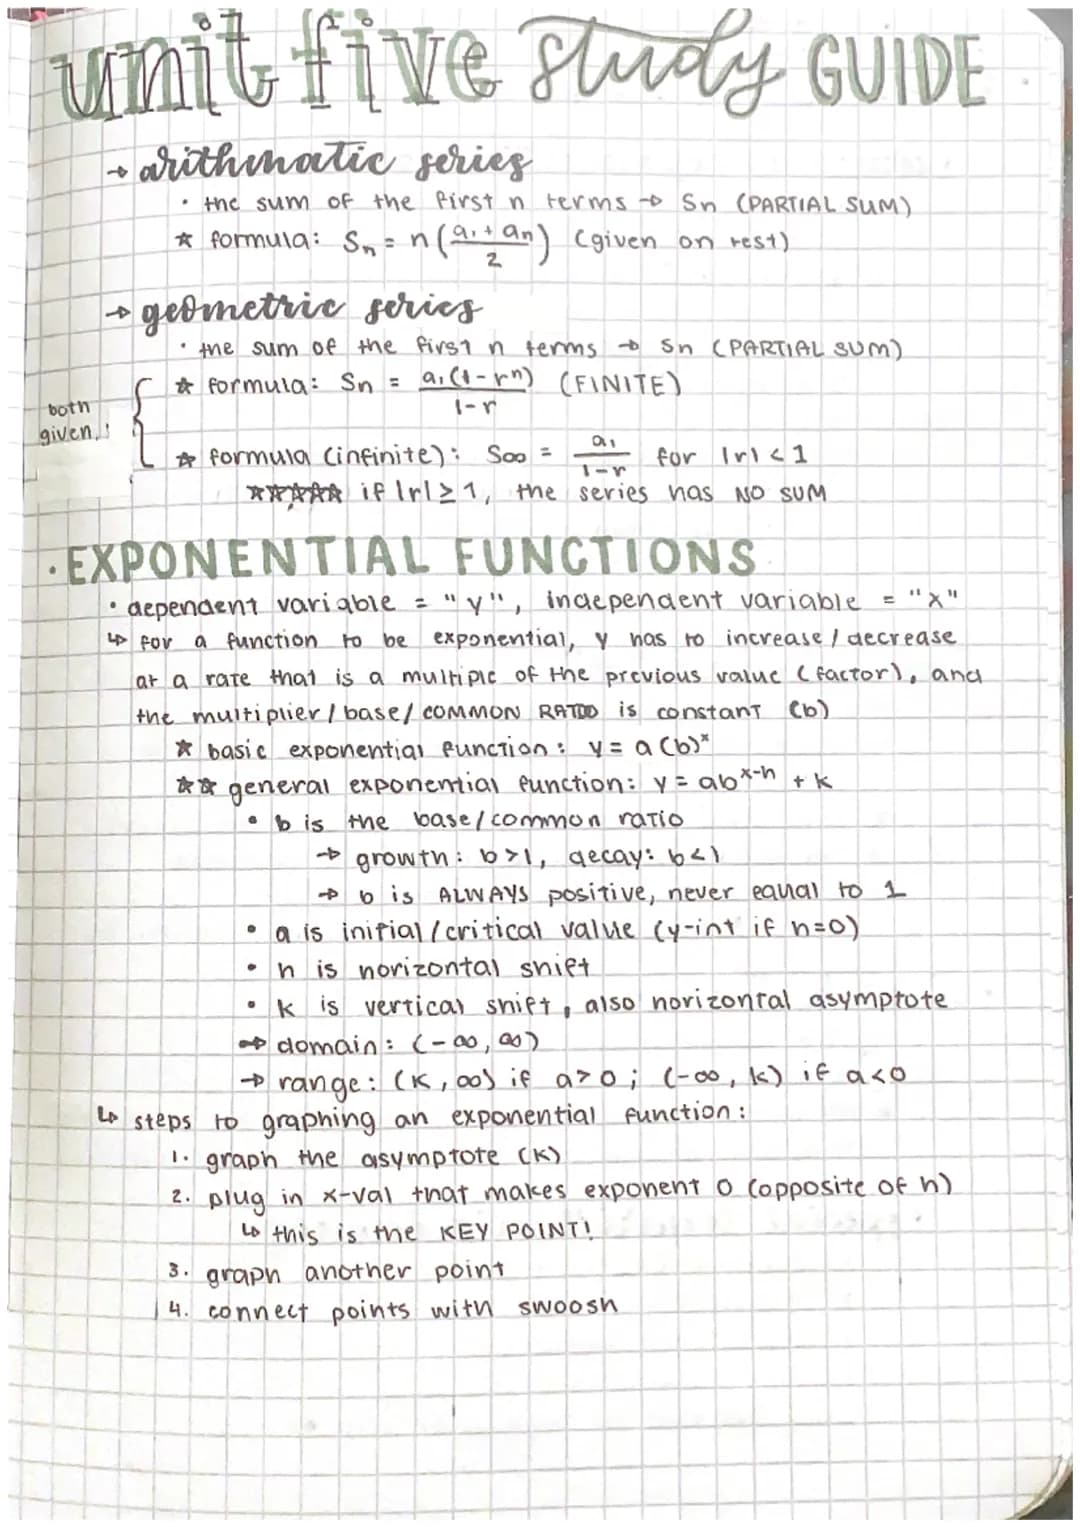 unit five study GUIDE
→ arithmatic series
• the sum of the first n terms → Sn (PARTIAL SUM)
☆ formula: Sₙ = n(a₁ + aₙ / 2) (given on test)
→ geometric series
• the sum of the first n terms → Sn (PARTIAL SUM)
☆ formula: Sn = a₁(1-rⁿ) / 1-r (FINITE)
both
given!
☆ formula (infinite): S∞ = a₁ / 1-r for |r| < 1
☆☆☆☆☆ if |r| ≥ 1, the series has NO SUM
• EXPONENTIAL FUNCTIONS
• dependent variable = "y", independent variable = "x"
↳ for a function to be exponential, y has to increase/decrease
at a rate that is a multiple of the previous value (factor), and
the multiplier/base/COMMON RATIO is constant (b)
☆ basic exponential function: y = a(b)ˣ
☆☆ general exponential function: y = abˣ⁻ʰ + k
• b is the base/common ratio
→ growth: b>1, decay: b<1
→ b is ALWAYS positive, never equal to 1
• a is initial/critical value (y-int if h=0)
• h is horizontal shift
• k is vertical shift, also horizontal asymptote
→ domain: (-∞, ∞)
→ range: (k, ∞) if a>0; (-∞, k) if a<0
↳ steps to graphing an exponential function:
1. graph the asymptote (k)
2. plug in x-val that makes exponent 0 (opposite of h)
↳ this is the KEY POINT!
3. graph another point
4. connect points with swoosh